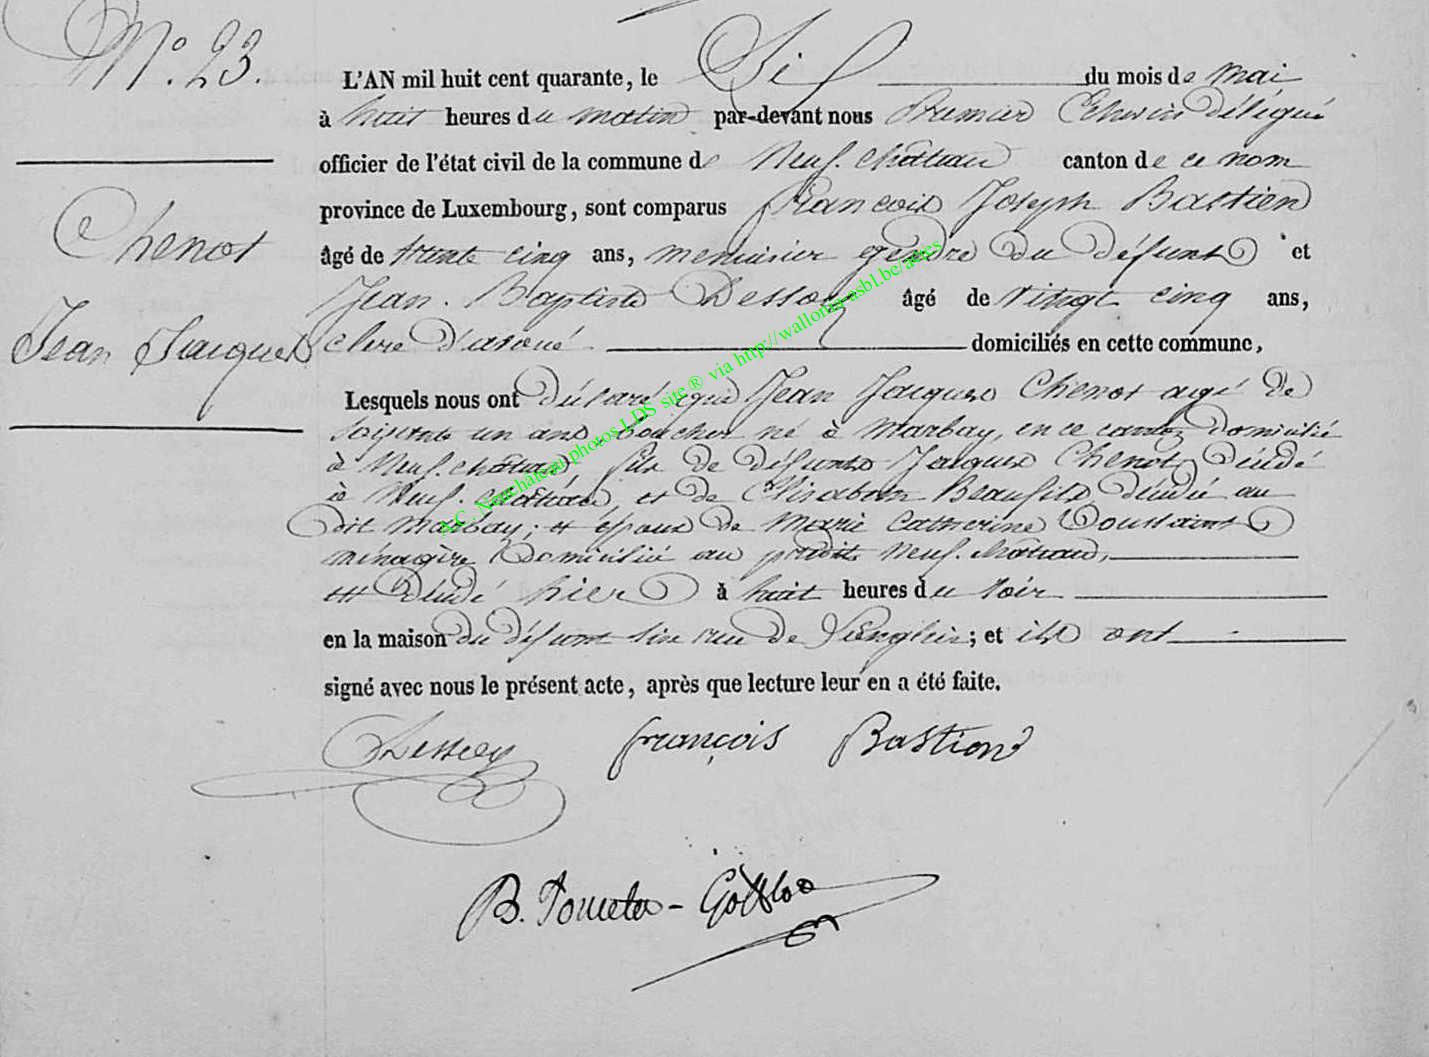 N° 23.
L'AN mil huit cent quarante, le Six du mois de mai
à huit heures du matin par-devant nous Premier Echevin délégué
officier de l'état civil de la commune de Neuf-château canton de ce nom
province de Luxembourg, sont comparus françois Joseph Bastien
Chenot
âgé de trente cinq ans, menuisier gendre du défunt et
Jean-Baptiste Dessoy âgé de vingt cinq ans,
Jean Jacques
clerc d'avoué domiciliés en cette commune,
Lesquels nous ont déclaré que Jean Jacques Chenot agé de
soixante un ans, boucher né à Marbay, en ce canton, domicilié
à Neuf-château, fils de défunts Jacques Chenot, décédé
à Neuf-château, et de Elisabeth Beaufils décédée au
dit Marbay; et époux de Marie Catherine Doussaint
ménagère domiciliée au prédit Neuf-château,
est décédé hier à huit heures du soir
en la maison du défunt sise rue de ; et ils ont
signé avec nous le présent acte, après que lecture leur en a été faite.
Dessoy françois Bastien
B.
A.C. Neufchâteau photos LDS site ® via http://wallonia-asbl.be/actes